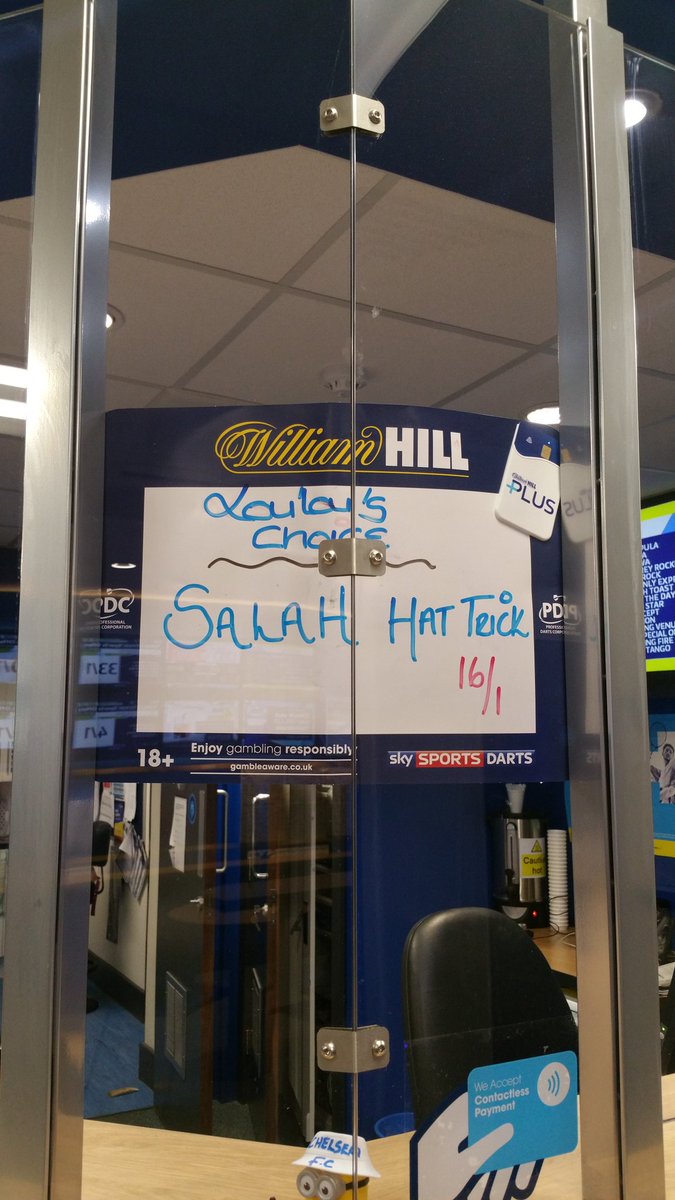 William HILL
William HILL
PLUS
Loulou's
Choice
SALAH HAT TRICK
16/1
PDC
PROFESSIONAL
DARTS CORPORATION
18+
Enjoy gambling responsibly
gambleaware.co.uk
sky SPORTS DARTS
33/1
4/1
Caution
hot
We Accept
Contactless
Payment
CHELSEA
F.C